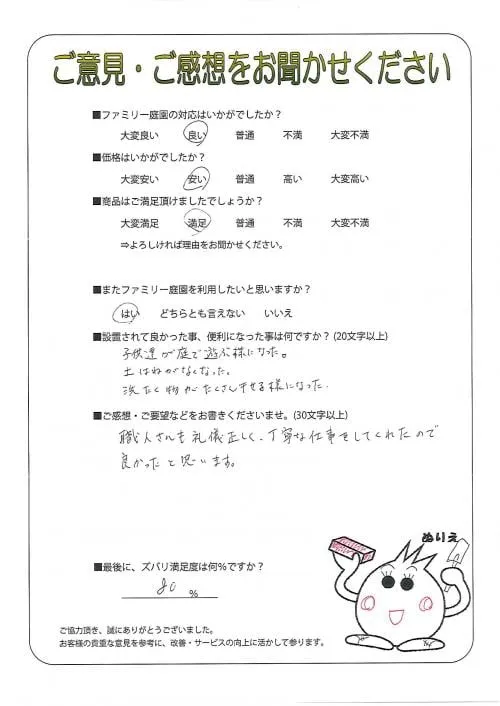 ご意見・ご感想をお聞かせください
■ファミリー庭園の対応はいかがでしたか？
大変良い 良い 普通 不満 大変不満
■価格はいかがでしたか？
大変安い 安い 普通 高い 大変高い
■商品はご満足頂けましたでしょうか？
大変満足 満足 普通 不満 大変不満
⇒よろしければ理由をお聞かせください。
■またファミリー庭園を利用したいと思いますか？
はい どちらとも言えない いいえ
■設置されて良かった事、便利になった事は何ですか？(20文字以上)
子供達が庭で遊ぶ様になった。
土はねがなくなった。
洗たく物がたくさん干せる様になった.
■ご感想・ご要望などをお書きくださいませ。(30文字以上)
職人さんも礼儀正しく、丁寧な仕事をしてくれたので
良かったと思います。
ぬりえ
■最後に、ズバリ満足度は何％ですか？
80 %
ご協力頂き、誠にありがとうございました。
お客様の貴重な意見を参考に、改善・サービスの向上に活かして参ります。